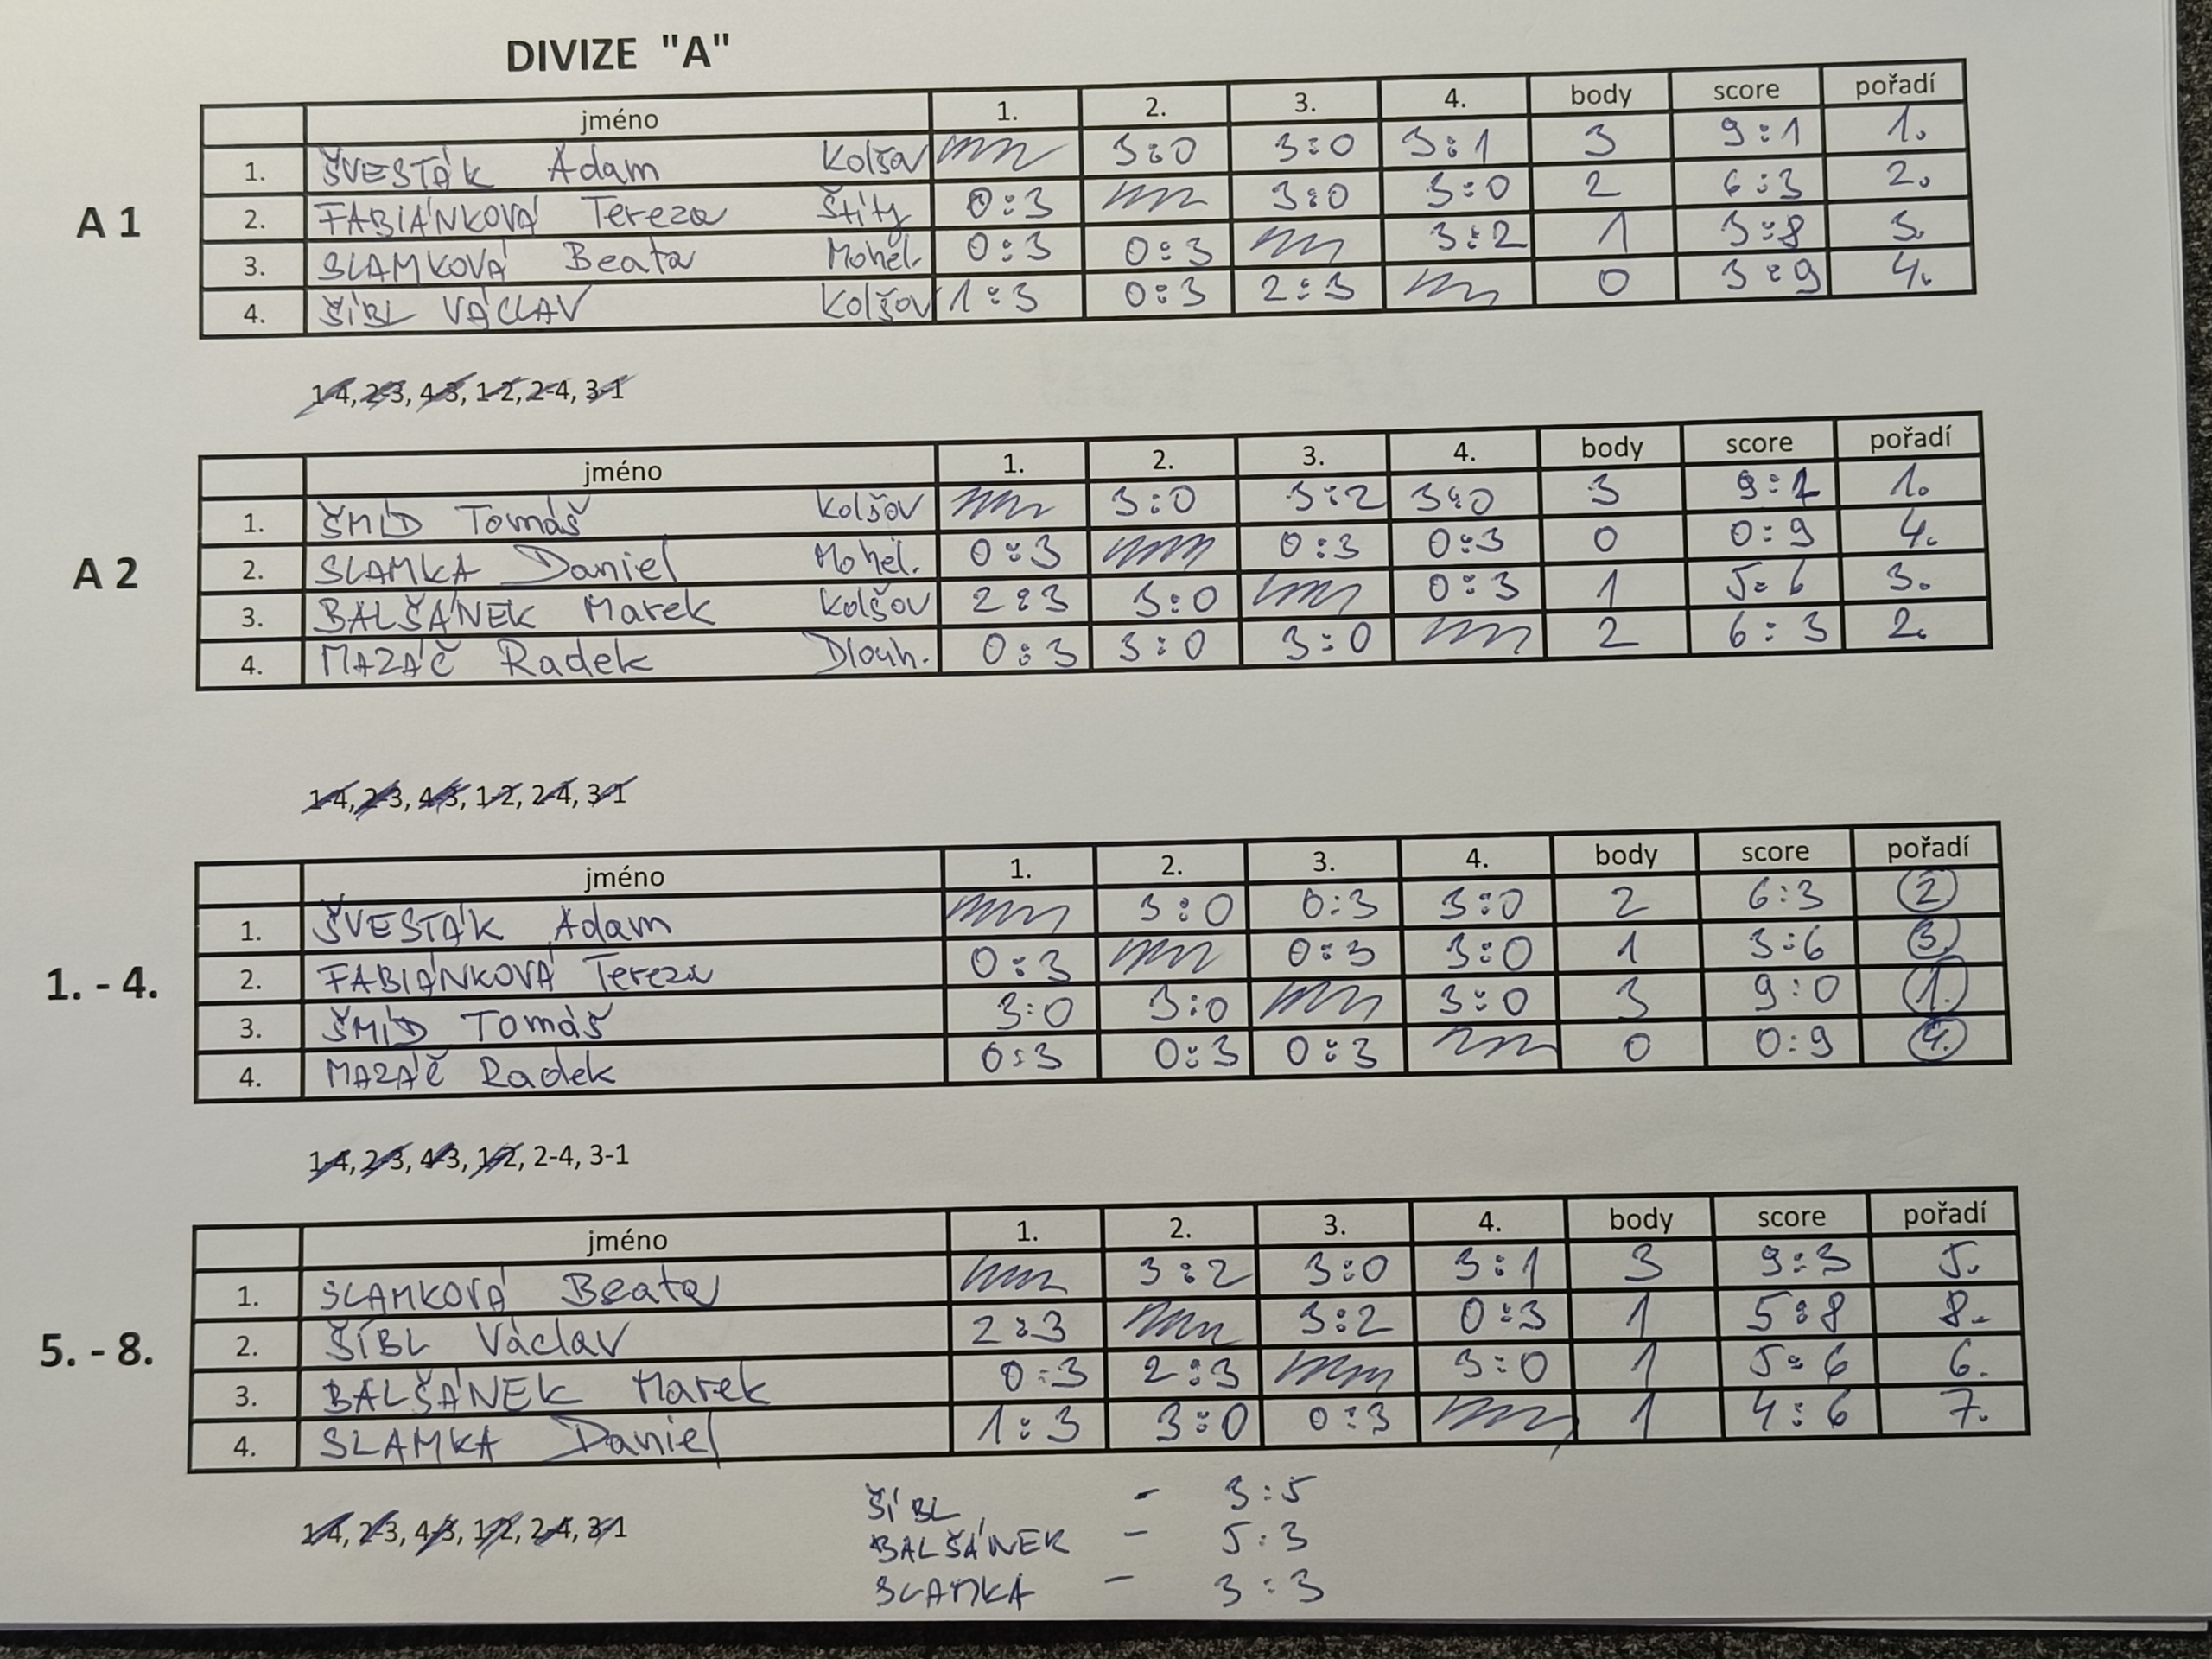 DIVIZE "A"
jméno 1. 2. 3. 4. body score pořadí
A 1
1. ŠVESTÁK Adam Kolšov 3:0 3:0 3:1 3 9:1 1.
2. FABIÁNKOVÁ Tereza Štíty 0:3 3:0 3:0 2 6:3 2.
3. SLAMKOVÁ Beata Mohel. 0:3 0:3 3:2 1 3:8 3.
4. ŠÍBL VÁCLAV Kolšov 1:3 0:3 2:3 0 3:9 4.
1-4, 2-3, 4-3, 1-2, 2-4, 3-1
jméno 1. 2. 3. 4. body score pořadí
A 2
1. ŠMÍD Tomáš Kolšov 3:0 3:2 3:0 3 9:2 1.
2. SLAMKA Daniel Mohel. 0:3 0:3 0:3 0 0:9 4.
3. BALŠÁNEK Marek Kolšov 2:3 3:0 0:3 1 5:6 3.
4. MAZÁČ Radek Dlouh. 0:3 3:0 3:0 2 6:3 2.
1-4, 2-3, 4-3, 1-2, 2-4, 3-1
jméno 1. 2. 3. 4. body score pořadí
1. - 4.
1. ŠVESTÁK Adam 3:0 0:3 3:0 2 6:3 2
2. FABIÁNKOVÁ Tereza 0:3 0:3 3:0 1 3:6 3.
3. ŠMÍD Tomáš 3:0 3:0 3:0 3 9:0 1.
4. MAZÁČ Radek 0:3 0:3 0:3 0 0:9 4.
1-4, 2-3, 4-3, 1-2, 2-4, 3-1
jméno 1. 2. 3. 4. body score pořadí
5. - 8.
1. SLAMKOVÁ Beata 3:2 3:0 3:1 3 9:3 5.
2. ŠÍBL Václav 2:3 3:2 0:3 1 5:8 8.
3. BALŠÁNEK Marek 0:3 2:3 3:0 1 5:6 6.
4. SLAMKA Daniel 1:3 3:0 0:3 1 4:6 7.
1-4, 2-3, 4-3, 1-2, 2-4, 3-1
ŠÍBL - 3:5
BALŠÁNEK - 5:3
SLAMKA - 3:3